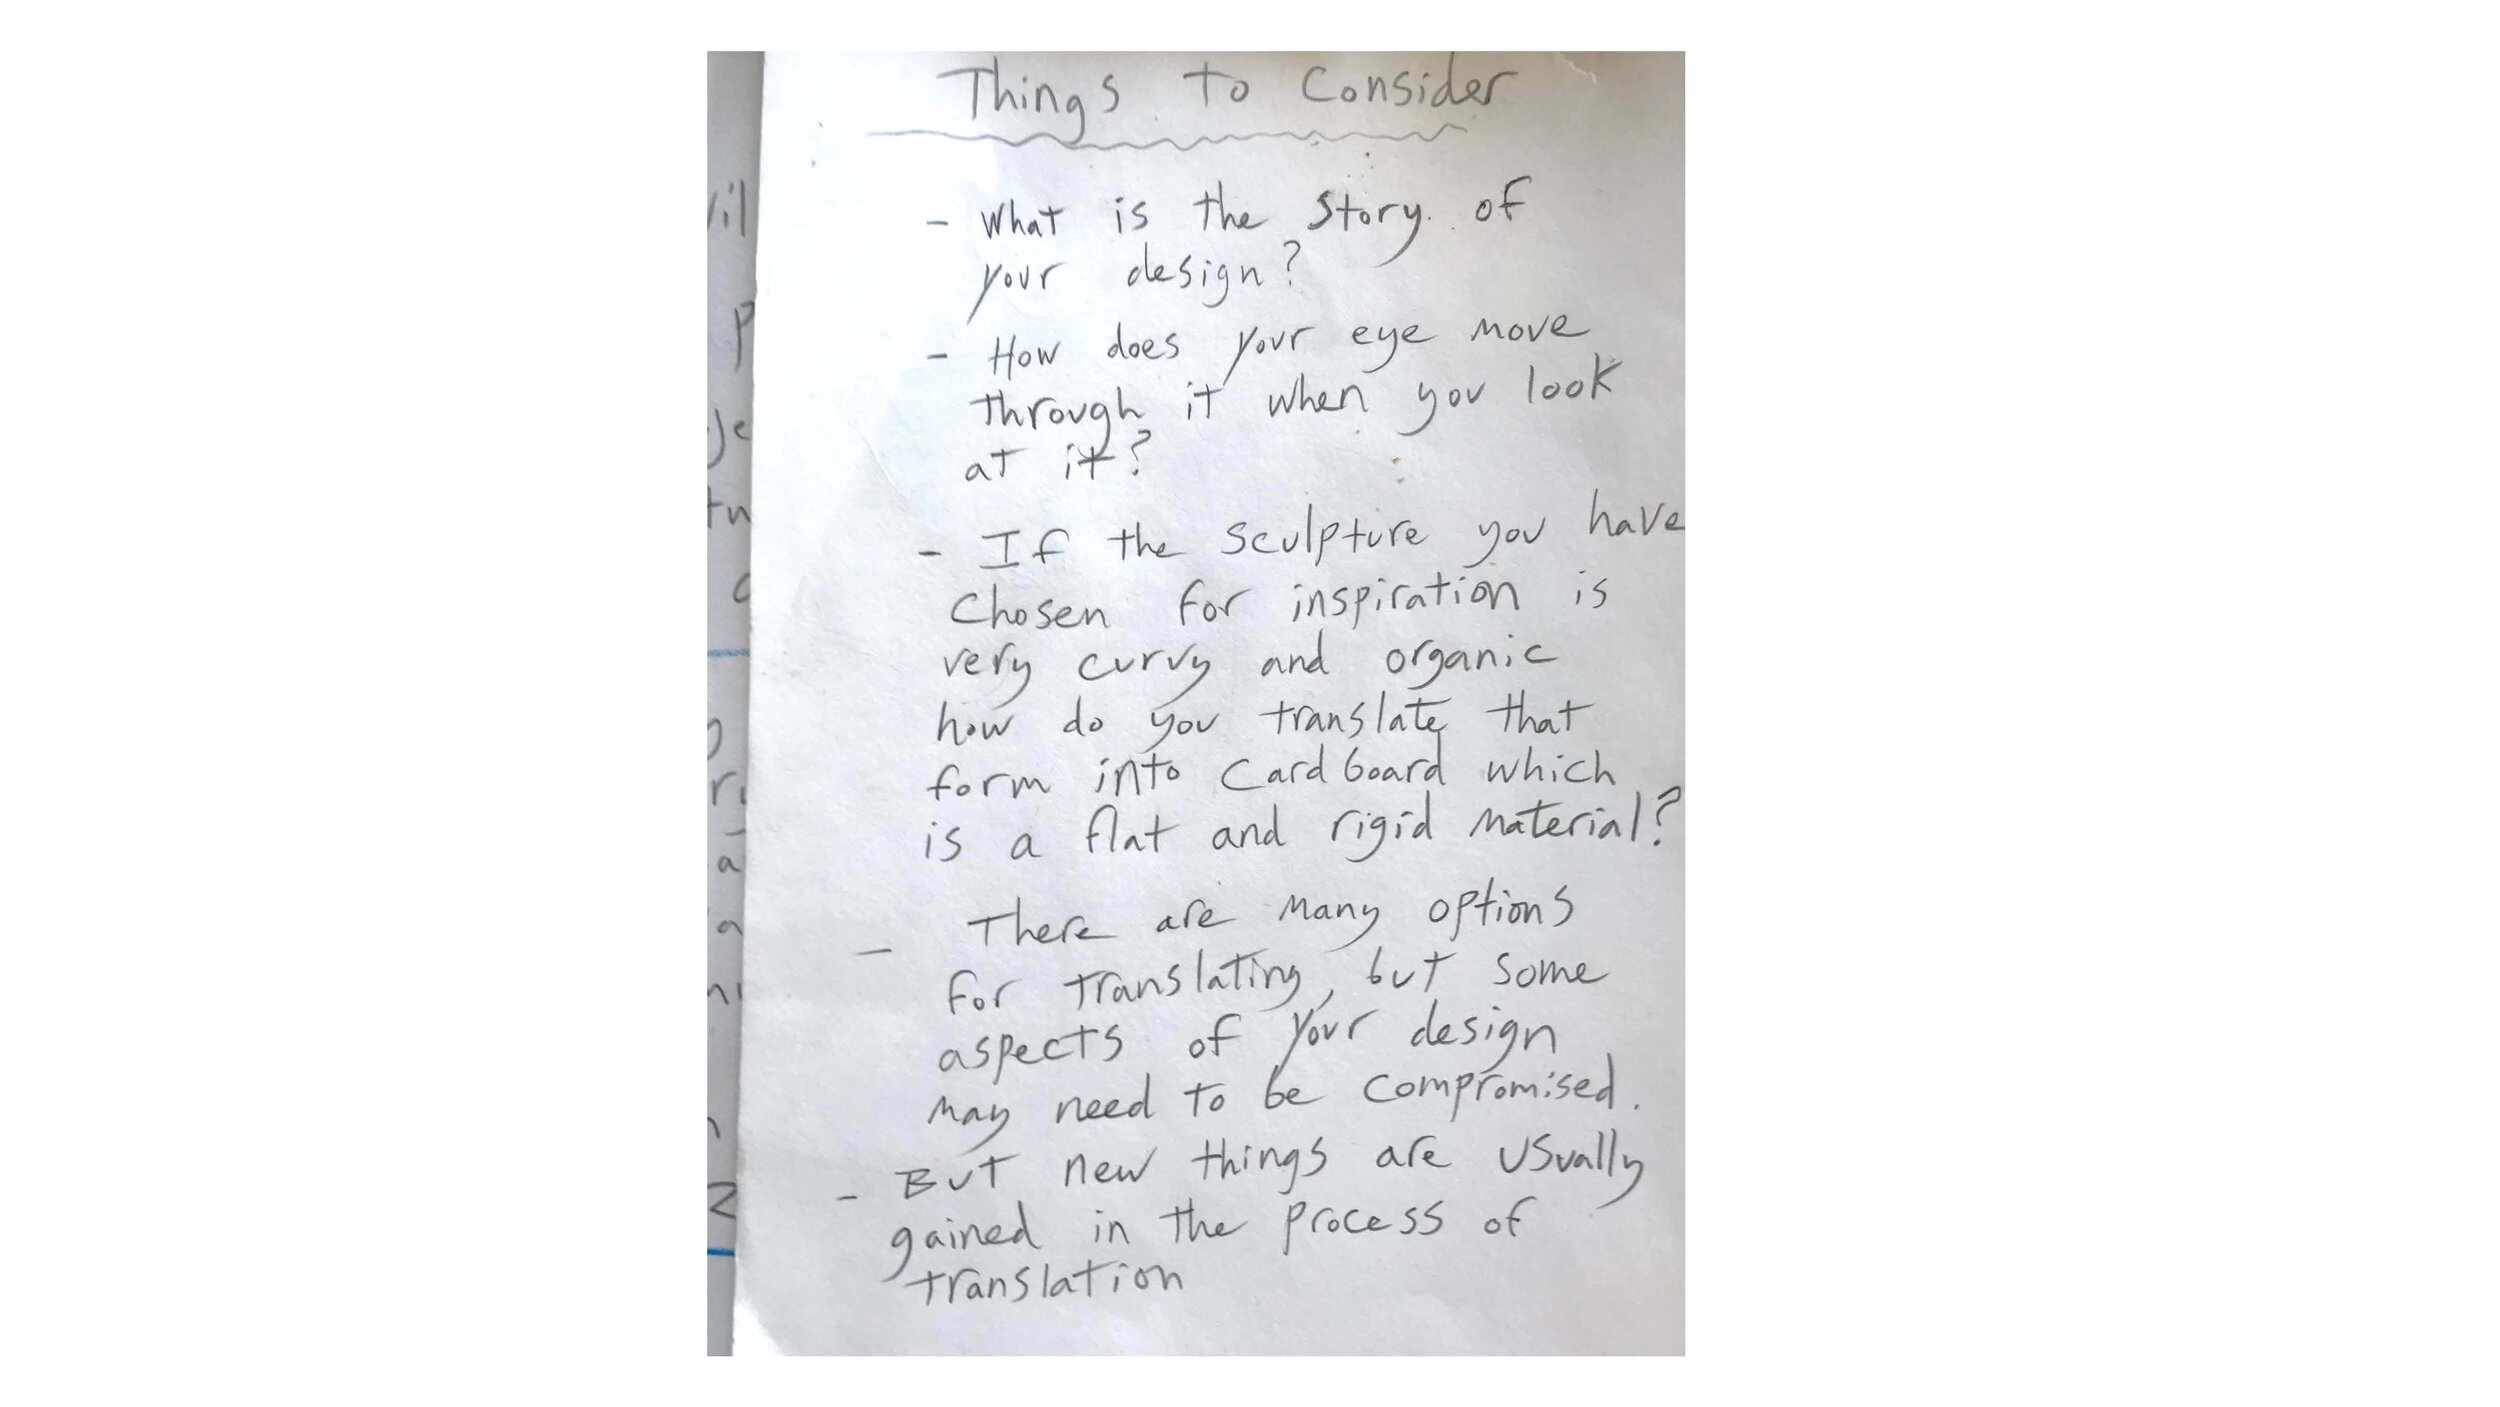 Things to Consider
- What is the story of
your design?
- How does your eye move
through it when you look
at it?
- If the sculpture you have
Chosen for inspiration is
very curvy and organic
how do you translate that
form into cardboard which
is a flat and rigid material?
- There are many options
for translating, but some
aspects of your design
may need to be compromised.
- But new things are usually
gained in the process of
translation